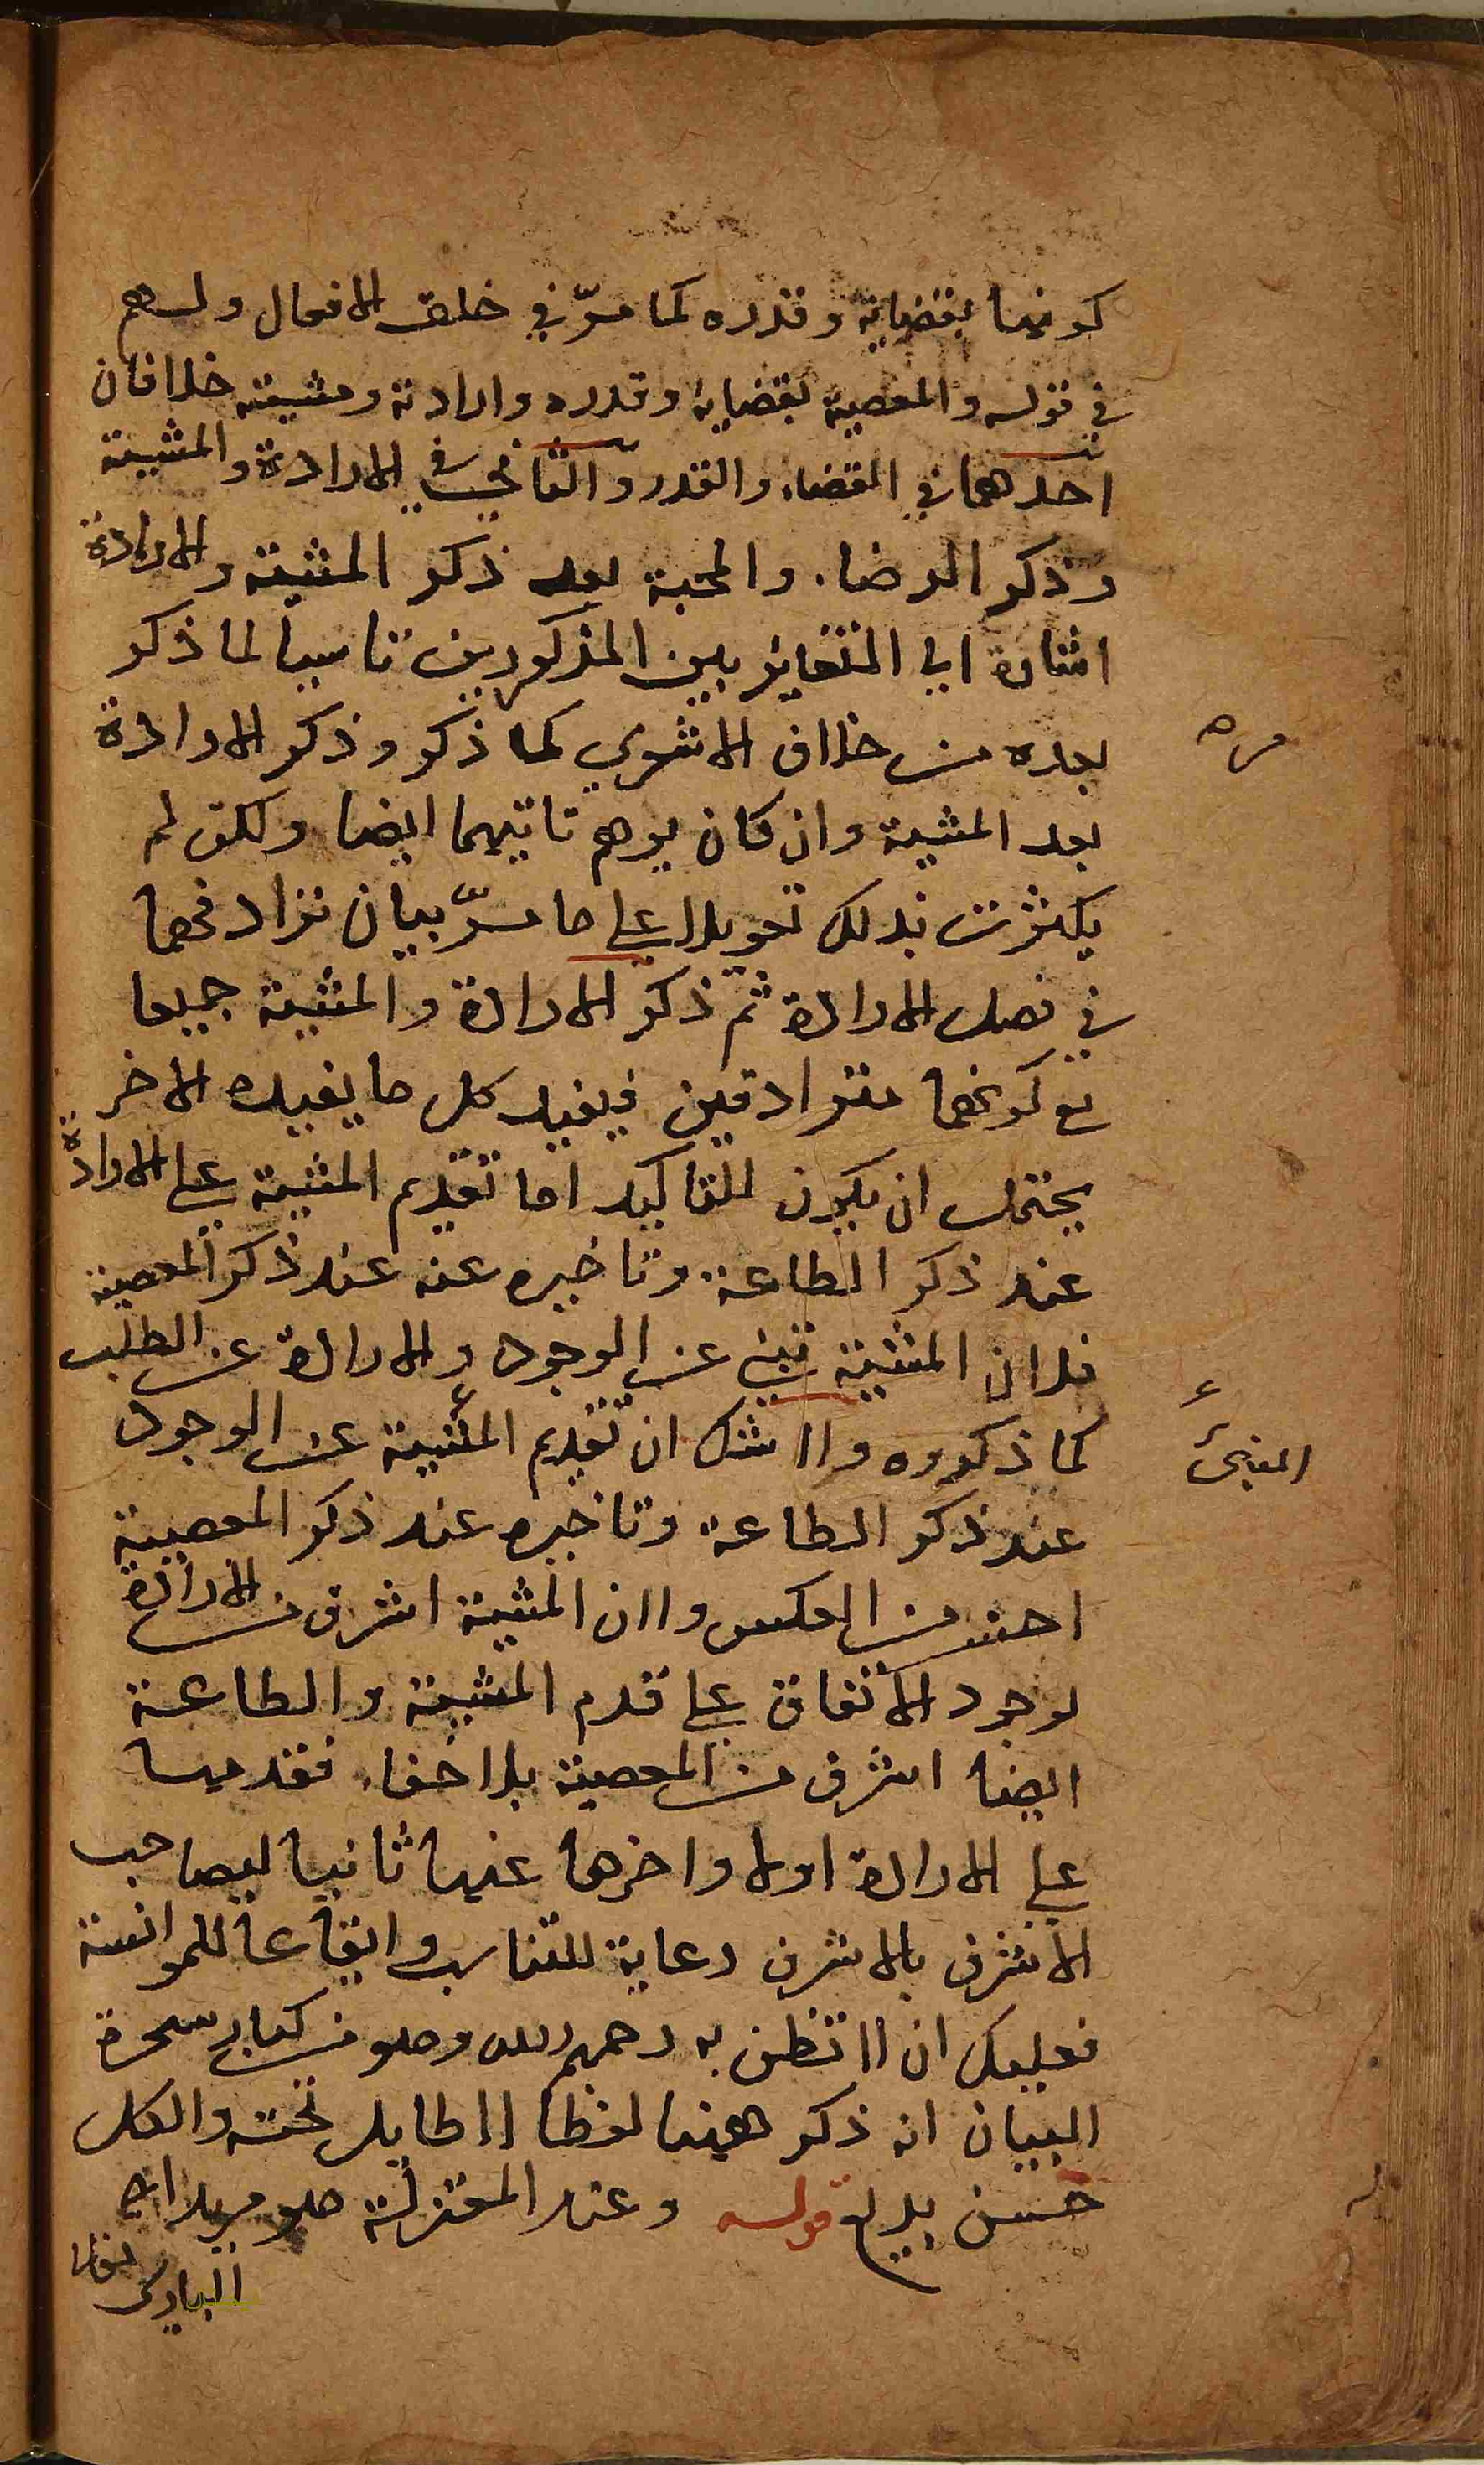 كونها بقضاية وقدره كما مرّ في خلق الافعال ولهم
في قوله والمعصية بقضاية وقدره وارادته ومشيته خلافان
احدهما في القضاء والقدر والثاني في الارادة والمشية
وذكر الرضاء والمحبة بعد ذكر المشية والارادة
اشارة الي التغاير بين المذكورين تاسيا لما ذكر
بعده من خلاف الاشعري كما ذكر وذكر الارادة
مره
بعد المشية وان كان يوهم ايضا ولكن لم
يكترث بذلك تعويلا علي ما مرّ بيان ترادفهما
في فصل الارادة ثم ذكر الارادة والمشية جميعا
مع كونهما مترادفين فيفيد كل ما يفيده الاخر
يحتمل ان يكون للتاكيد اما تقديم المشية علي الارادة
عند ذكر الطاعة وتاخيره عنه عند ذكر المعصية
فلان المشية تنبي عن الوجود والارادة عن الطلب
كما ذكروه ولا شك ان تقديم المشية عن الوجود
المنبئ
عند ذكر الطاعة وتاخيره عند ذكر المعصية
احسن من العكس ولان المشية اشرف من الارادة
لوجود الاتفاق علي قدم المشية والطاعة
ايضا اشرف من المعصية بلا خفاء فقدمها
علي الارادة اولا واخرها عنها ثانيا ليصاحب
الاشرف بالاشرف رعاية للتناسب وايقاعا للموانسة
فعليك ان لا تظن به رحمهم الله وهو من كبار سحرة
البيان انه ذكر ههنا لفظا لا طايل تحته والكل
حسن بديع قوله وعند المعتزلة هو مريد اي
الباري